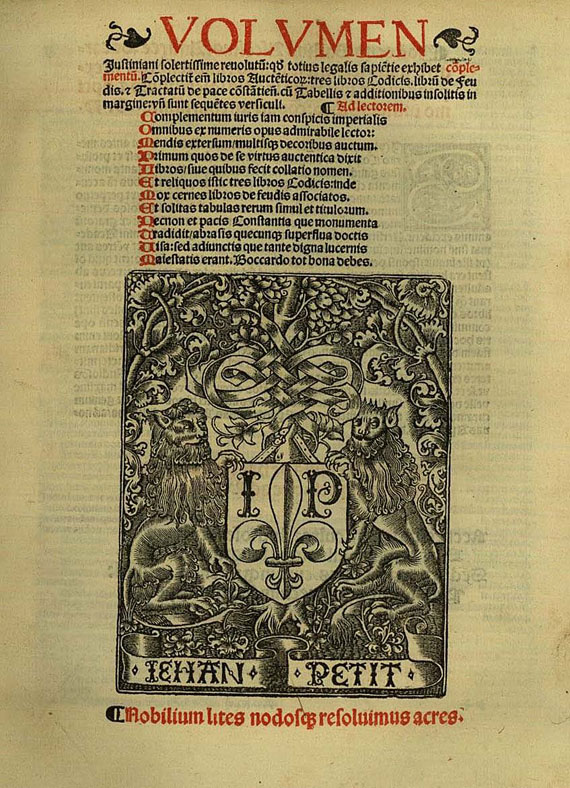 VOLVMEN
Justiniani solertissime reuolutū: qd̄ totius legalis sapiētie exhibet cōple-
mentū. Cōplectit̄ em̄ libros Auctēticoꝝ: tres libros Codicis. librū de Feu
dis. ⁊ Tractatū de pace cōstātien̄. cū Tabellis ⁊ additionibus insolitis in
margine: vn̄ sunt sequētes versiculi. ¶ Ad lectorem.
Complementum iuris iam conspicis imperialis
Omnibus ex numeris opus admirabile lector:
Mendis extersum/multisqꝫ decoribus auctum.
Primum quos de se virtus auctentica dixit
Libros/siue quibus fecit collatio nomen.
Et reliquos istic tres libros Codicis: inde
Mox cernes libros de feudis associatos.
Et solitas tabulas rerum simul et titulorum.
Necnon et pacis Constantia que monumenta
Tradidit/abrasis quecunqꝫ superflua doctis
Visa: sed adiunctis que tante digna lucernis
Maiestatis erant. Boccardo tot bona debes.
I P
IEHAN PETIT
¶ Nobilium lites nodosqꝫ resoluimus acres.